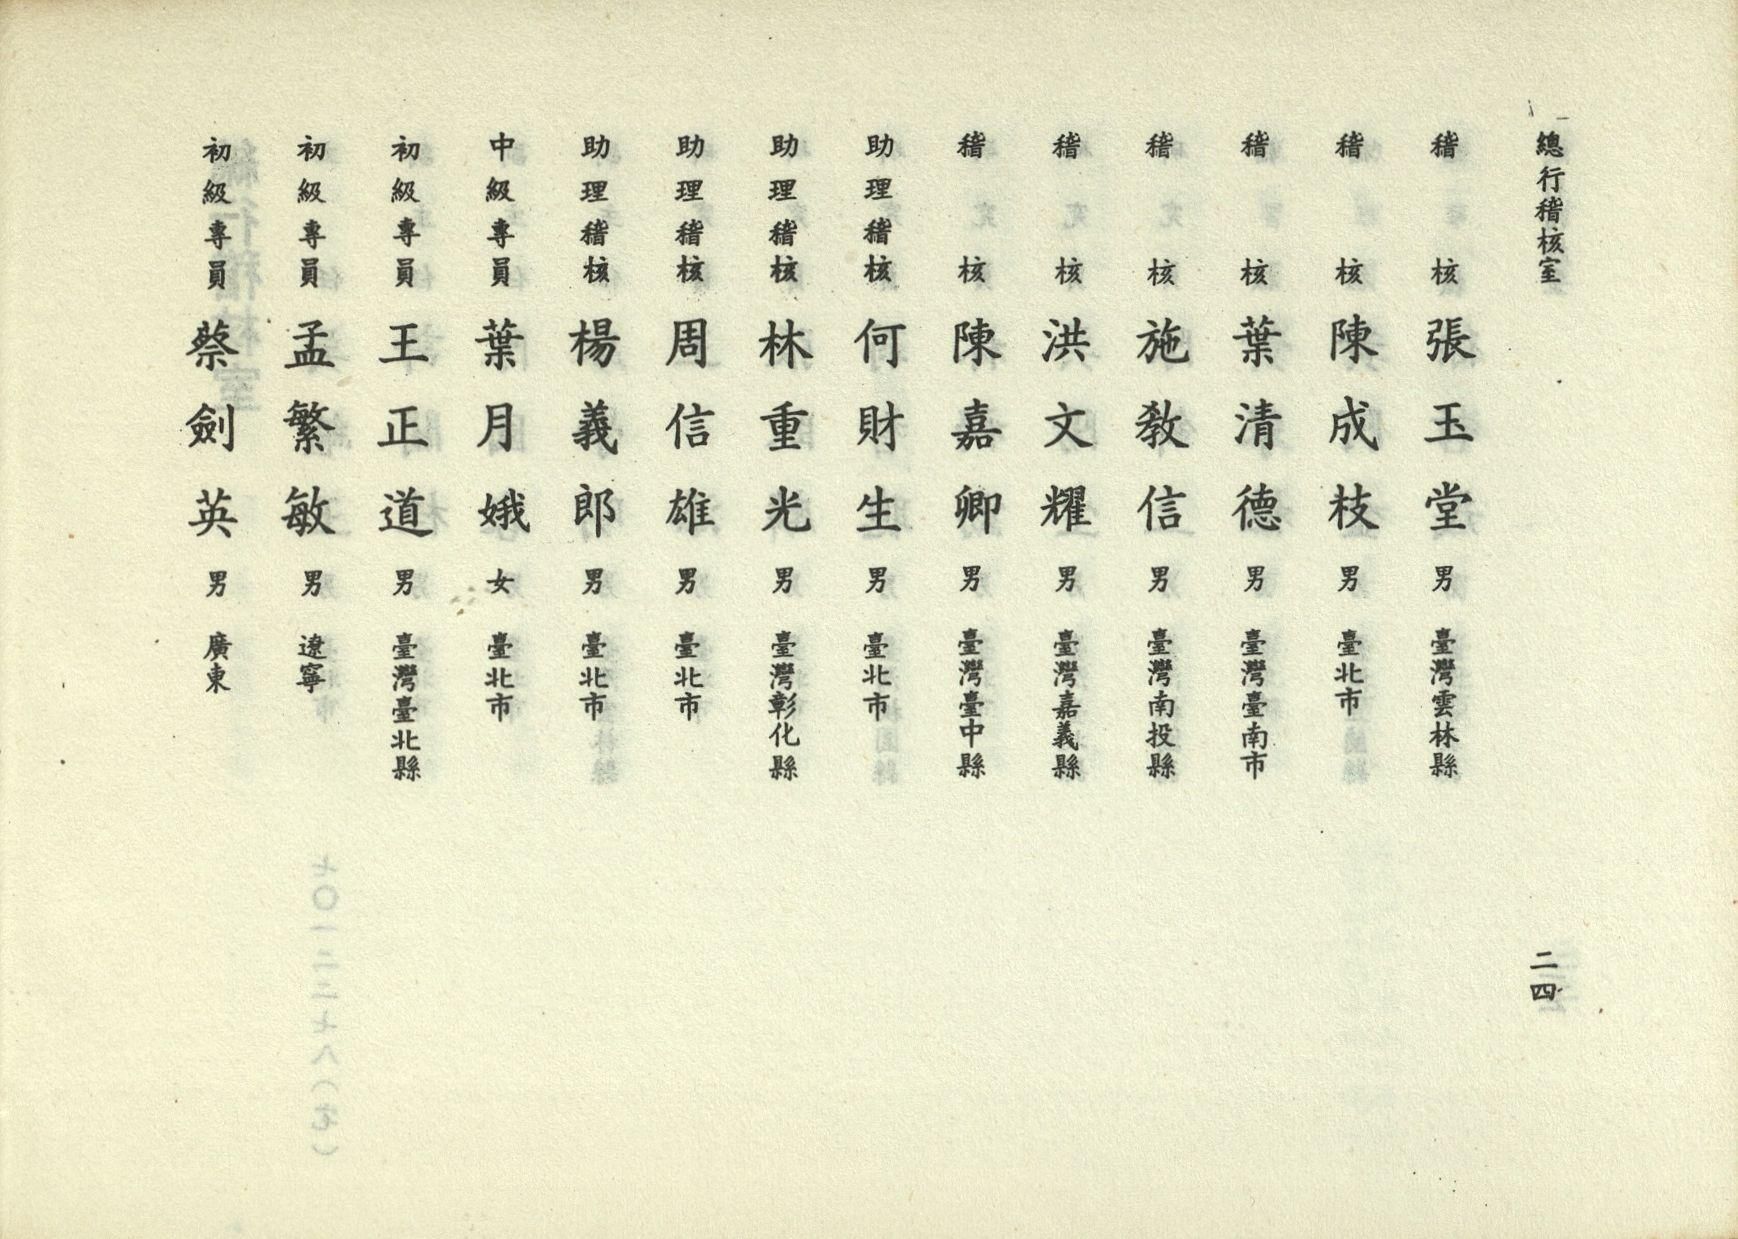 總行稽核室
二四
稽核 張玉堂 男 臺灣雲林縣
稽核 陳成枝 男 臺北市
稽核 葉清德 男 臺灣臺南市
稽核 施教信 男 臺灣南投縣
稽核 洪文耀 男 臺灣嘉義縣
稽核 陳嘉卿 男 臺灣臺中縣
助理稽核 何財生 男 臺北市
助理稽核 林重光 男 臺灣彰化縣
助理稽核 周信雄 男 臺北市
助理稽核 楊義郎 男 臺北市
中級專員 葉月娥 女 臺北市
初級專員 王正道 男 臺灣臺北縣
初級專員 孟繁敏 男 遼寧
初級專員 蔡劍英 男 廣東